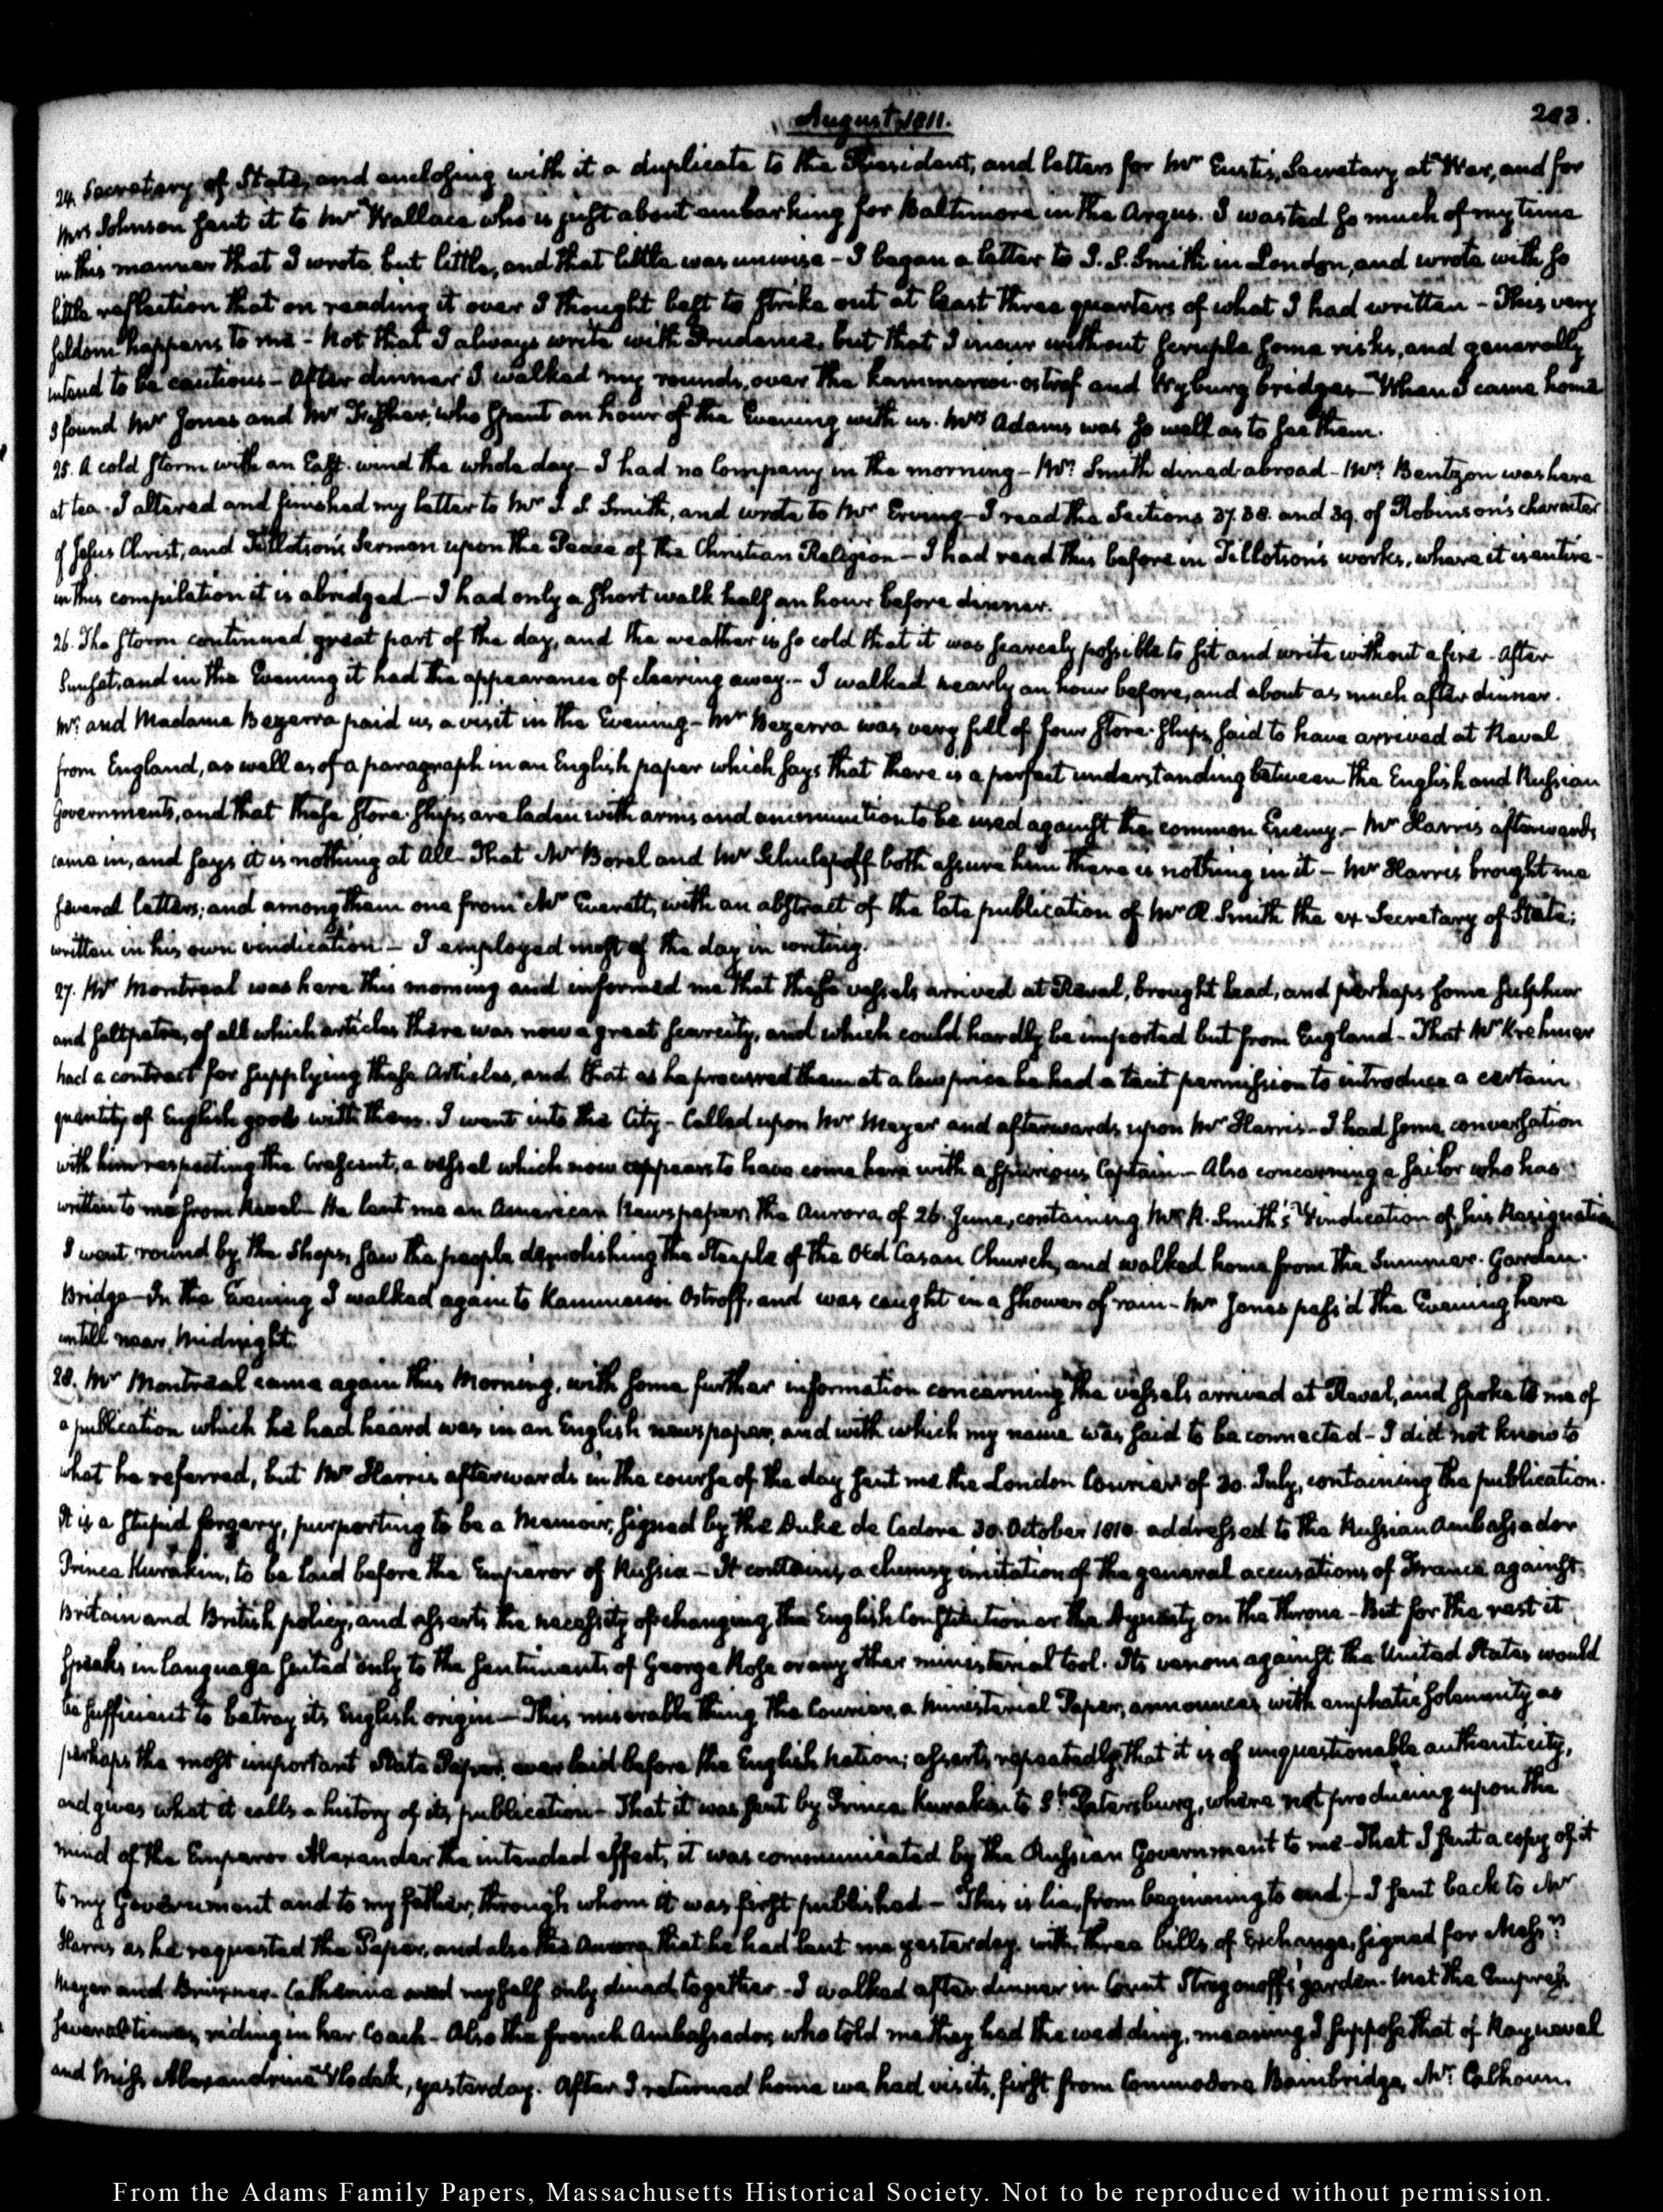 August 1811.
203.
24. Secretary of State, and enclosing with it a duplicate to the President, and letters for Mr Eustis, Secretary at War, and for
Mrs Johnson sent it to Mr Wallace who is just about embarking for Baltimore in the Argus. I wasted so much of my time
in this manner that I wrote but little, and that little was unwise – I began a letter to J. S. Smith in London, and wrote with so
little reflection that on reading it over I thought best to strike out at least three quarters of what I had written – This very
seldom happens to me – Not that I always write with Prudence, but that I incur without scruple some risks, and generally
intend to be cautious – After dinner I walked my rounds, over the Kammenoi-ostrof and Wyburg bridges – When I came home
I found Mr Jones and Mr Fisher, who spent an hour of the Evening with us. Mrs Adams was so well as to see them.
25. A cold storm with an East wind the whole day – I had no Company in the morning – Mr Smith dined abroad – Mrs Bentzon was here
at tea. I altered and finished my letter to Mr J. S. Smith, and wrote to Mr Erving – I read the Sections 37. 38. and 39. of Robinson's character
of Jesus Christ, and Tillotson's Sermon upon the Peace of the Christian Religion – I had read this before in Tillotson's works, where it is entire –
in this compilation it is abridged – I had only a short walk half an hour before dinner.
26. The storm continued great part of the day, and the weather is so cold that it was scarcely possible to sit and write without a fire – After
Sunset, and in the Evening it had the appearance of clearing away. – I walked nearly an hour before, and about as much after dinner.
Mr and Madame Bezerra paid us a visit in the Evening – Mr Bezerra was very full of four Store-ships, said to have arrived at Reval
from England, as well as of a paragraph in an English paper which says that there is a perfect understanding between the English and Russian
Governments, and that these Store-Ships are laden with arms and ammunition to be used against the common Enemy. – Mr Harris afterwards
came in, and says it is nothing at all – That Mr Borel and Mr Schulepoff both assure him there is nothing in it – Mr Harris brought me
several letters; and among them one from Mr Everett, with an abstract of the late publication of Mr R. Smith the ex Secretary of State;
written in his own vindication – I employed most of the day in writing.
27. Mr Montreal was here this morning and informed me that these vessels arrived at Reval, brought lead, and perhaps some sulphur
and saltpetre, of all which articles there was now a great scarcity, and which could hardly be imported but from England – That Mr Krehmer
had a contract for supplying these Articles, and that as he procured them at a low price he had a tacit permission to introduce a certain
quantity of English goods with them. I went into the City – Called upon Mr Meyer and afterwards upon Mr Harris – I had some conversation
with him respecting the Crescent, a vessel which now appears to have come here with a spurious Captain – Also concerning a sailor who has
written to me from Reval – He lent me an American Newspaper, the Aurora, of 26. June, containing Mr R. Smith's Vindication of his Resignation
I went round by the Shops, saw the people demolishing the Steeple of the Old Casan Church, and walked home from the Summer-Garden-
Bridge – In the Evening I walked again to Kammenoi Ostroff, and was caught in a shower of rain – Mr Jones pass'd the Evening here
untill near Midnight.
28. Mr Montreal came again this Morning, with some further information concerning the vessels arrived at Reval, and spoke to me of
a publication which he had heard was in an English newspaper, and with which my name was said to be connected – I did not know to
what he referred, but Mr Harris afterwards in the course of the day sent me the London Courier of 30. July, containing the publication.
It is a stupid forgery, purporting to be a Memoir, signed by the Duke de Cadore 30. October 1810. addressed to the Russian Ambassador
Prince Kurakin, to be laid before the Emperor of Russia – It contains a clumsy imitation of the general accusations of France against
Britain and British policy, and asserts the necessity of changing the English Constitution or the Dynasty on the throne – But for the rest it
speaks in language suited only to the sentiments of George Rose or any other ministerial tool. Its venom against the United States would
be sufficient to betray its English origin – This miserable thing the Courier, a Ministerial Paper, announces with emphatic solemnity as
perhaps the most important State Paper, ever laid before the English Nation; asserts repeatedly that it is of unquestionable authenticity,
and gives what it calls a history of its publication – That it was sent by Prince Kurakin to St Petersburg, where not producing upon the
mind of the Emperor Alexander the intended effect, it was communicated by the Russian Government to me – That I sent a copy of it
to my Government and to my father, through whom it was first published – This is lies from beginning to end – I sent back to Mr
Harris as he requested the Paper, and also the Aurora that he had lent me yesterday, with three bills of Exchange, signed for Messrs
Meyer and Bruxner – Catherine and myself only dined together – I walked after dinner in Count Strogonoff's garden. Met the Empress
several times, riding in her Coach – Also the French Ambassador, who told me they had the wedding, meaning I suppose that of Rayneval
and Miss Alexandrine Wlodek, yesterday. After I returned home we had visits, first from Commodore Bainbridge, Mr Calhoun
From the Adams Family Papers, Massachusetts Historical Society. Not to be reproduced without permission.